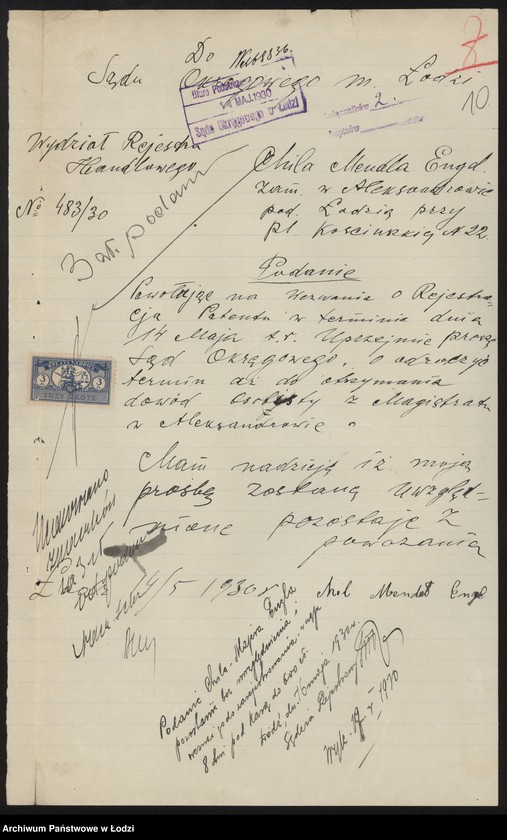 Do
Sądu Okręgowego m. Łodzi
Biuro Podawcze
14 MAJ. 1930
Sądu Okręgowego w Łodzi
2.
10
Wydział Rejestru
Handlowego
№ 483/30
Chila Mendla Engel
zam. w Aleksandrowie
pod. Łodzią przy
Pl. Kościuszkiej N 22.
3 ark podania
Podanie
Powołając na Wezwania o Rejestra-
cja Patentu w terminie dnia
14 Maja t.r. Uprzejmie proszę
Sąd Okręgowego, o odroczyć
termin aż do otrzymania
dowód osobisty z Magistratu
w Aleksandrowie.
3 3
TRZY ZŁOTE
Mam nadzieją iż moja
prośbą zostaną uwzględ-
nione pozostaję z
poważania
14/5 1930 r Mendel Engel
Podanie Chila-Majera Engla
pozostawić bez uwzględnienia i
wezwać go do zarejestrowania
8 dni pod karą do 600 zł.
Łódź, dn. 16 maja 1930 r.
Sędzia Rejestrowy
Wyk. 19 V 1930
Archiwum Państwowe w Łodzi